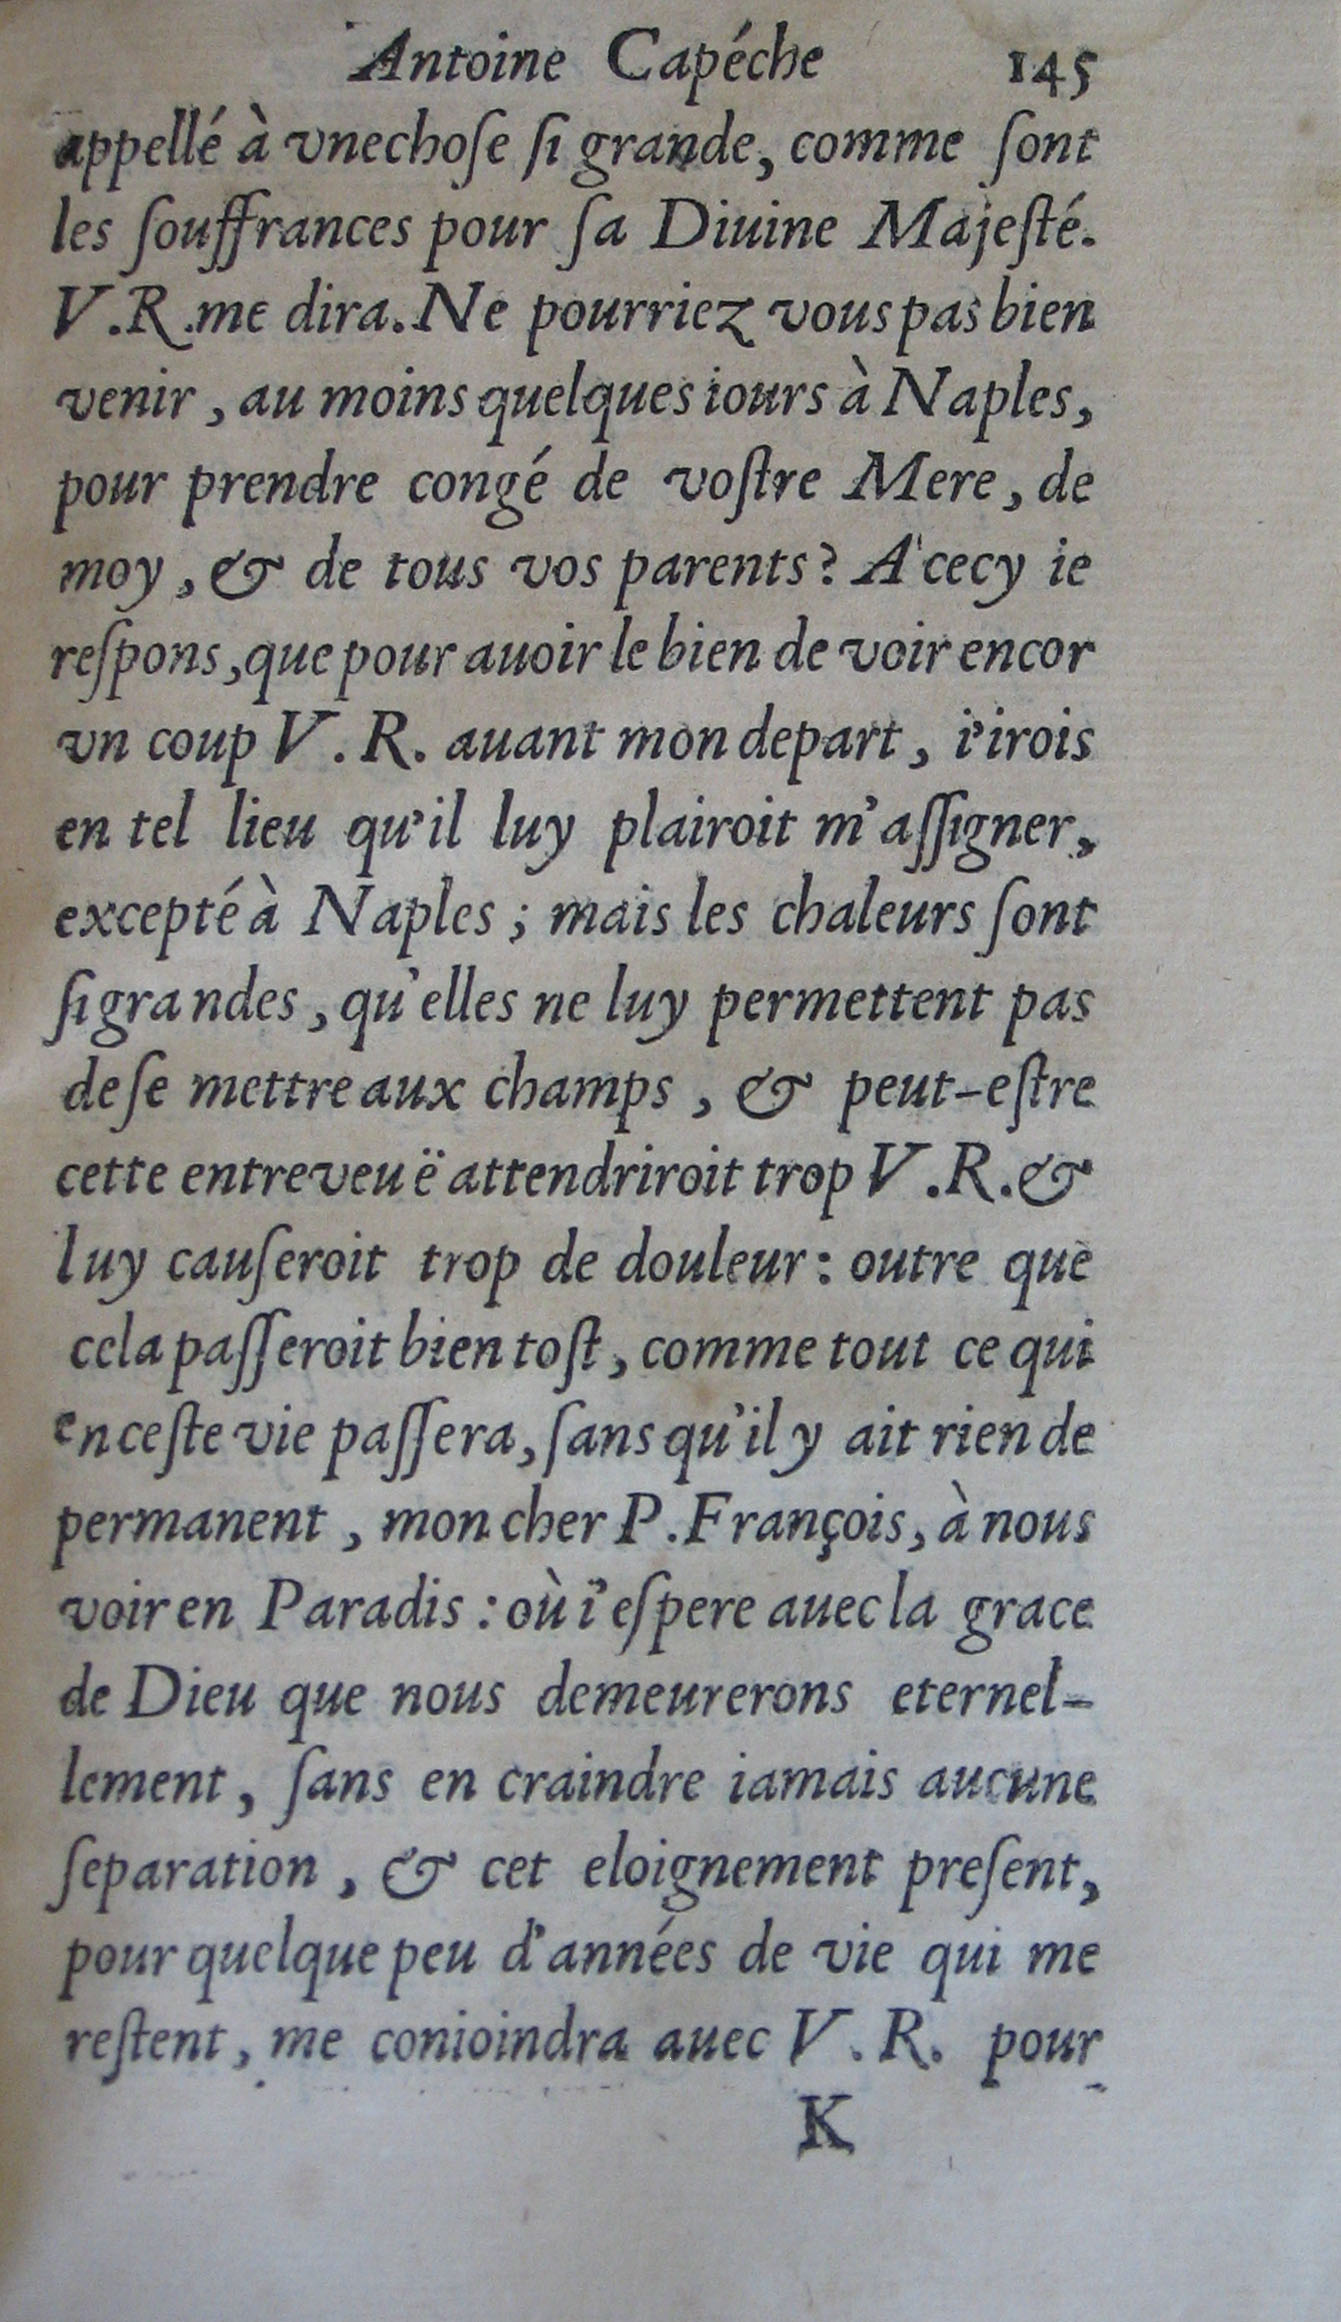 Antoine Capéche 145
appellé à vnechoſe ſi grande, comme ſont
les ſouffrances pour ſa Diuine Majeſté.
V.R.me dira. Ne pourriez vous pas bien
venir, au moins quelques iours à Naples,
pour prendre congé de voſtre Mere, de
moy, & de tous vos parents? A'cecy ie
reſpons, que pour auoir le bien de voir encor
vn coup V.R. auant mon depart, i'irois
en tel lieu qu'il luy plairoit m'aſſigner,
excepté à Naples; mais les chaleurs ſont
ſi grandes, qu'elles ne luy permettent pas
de ſe mettre aux champs, & peut-eſtre
cette entreveuë attendriroit trop V.R. &
luy cauſeroit trop de douleur: outre que
cela paſſeroit bien toſt, comme tout ce qui
en ceſte vie paſſera, ſans qu'il y ait rien de
permanent, mon cher P. François, à nous
voir en Paradis: où i'eſpere auec la grace
de Dieu que nous demeurerons eternel-
lement, ſans en craindre iamais aucune
ſeparation, & cet eloignement preſent,
pour quelque peu d'années de vie qui me
reſtent, me conioindra auec V.R. pour
K